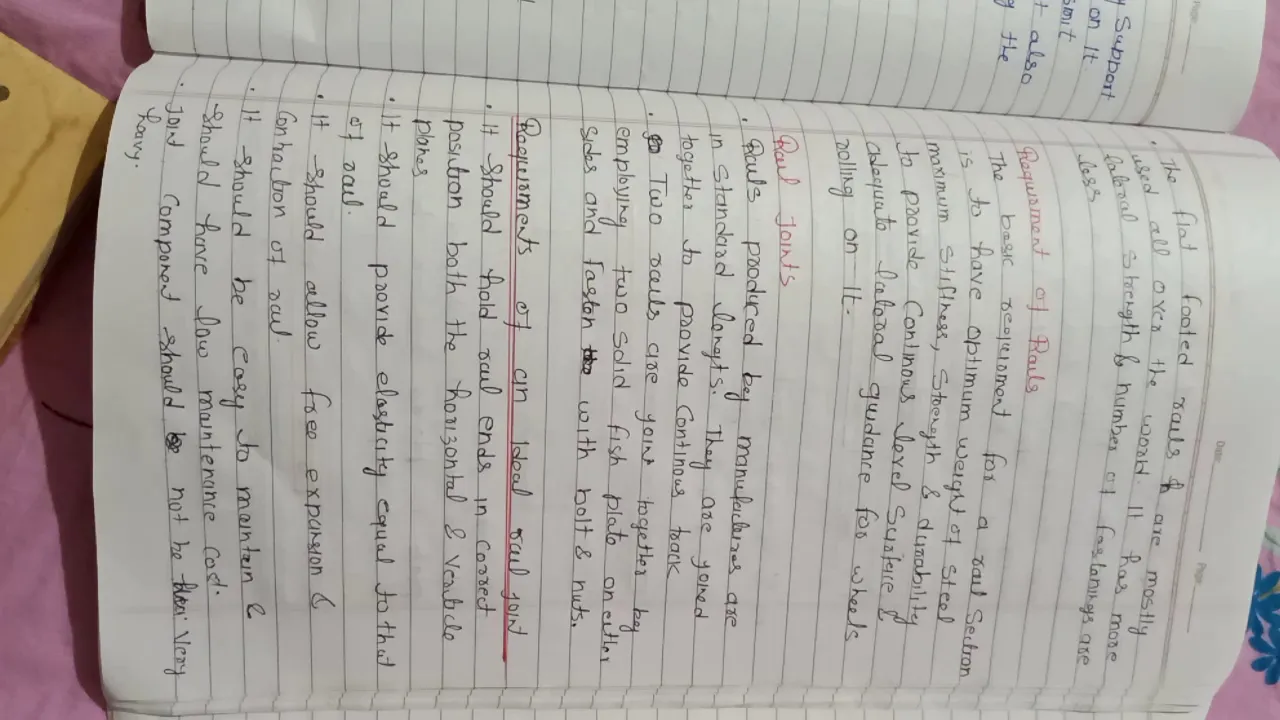 y Support
on It.
smit
t also
g the
Page
Date
Page
• The flat footed rails are mostly
used all over the world. It has more
lateral strength & number of fastenings are
less
Requirment of Rails
The basic requirment for a rail Section
is to have optimum weight of steel
maximum stiffness, strength & durability
to provide Continous level Surface &
adequate lateral guidance for wheels
rolling on It.
Rail Joints
• Rails produced by manufactures are
in standard lengts. They are yoined
together to provide Continous track
• Two rails are yoint together by
employing two solid fish plate on either
sides and Fasten with bolt & nuts.
Requirments of an Ideal rail joint
• It should hold rail ends in correct
position both the horizontal & Verticle
planes
• It should provide elasticity equal to that
of rail.
• It should allow free expansion &
Contraction of rail.
• It should be easy to maintain &
should have low maintenance cost.
• Joint Component should not be Very
havy.